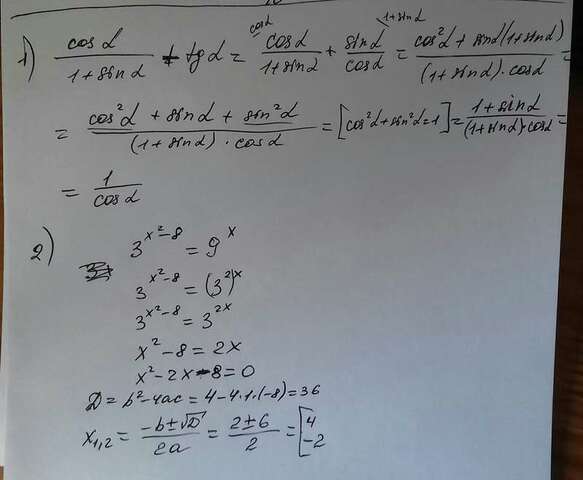 1) cosα/(1+sinα) + tgα = cosα/(1+sinα) + sinα/cosα = (cos²α + sinα(1+sinα))/((1+sinα)·cosα) =
= (cos²α + sinα + sin²α)/((1+sinα)·cosα) = [cos²α+sin²α=1] = (1+sinα)/((1+sinα)·cosα) =
= 1/cosα
2) 3^(x²-8) = 9^x
3^(x²-8) = (3²)^x
3^(x²-8) = 3^(2x)
x²-8 = 2x
x²-2x-8=0
D = b²-4ac = 4-4·1·(-8)=36
x₁,₂ = (-b±√D)/2a = (2±6)/2 = [4 -2